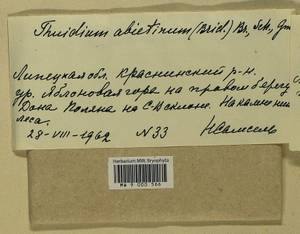 Thuidium abietinum (Brid.) Br., Sch., Gm
Липецкая обл. Краснинский р-н.
ур. Яблоновая гора на правом берегу
Дона поляна на С склоне. На камнях
леса.
28-VIII-1962 N 33
Herbarium MW, Bryophyta
MW 9 003 566